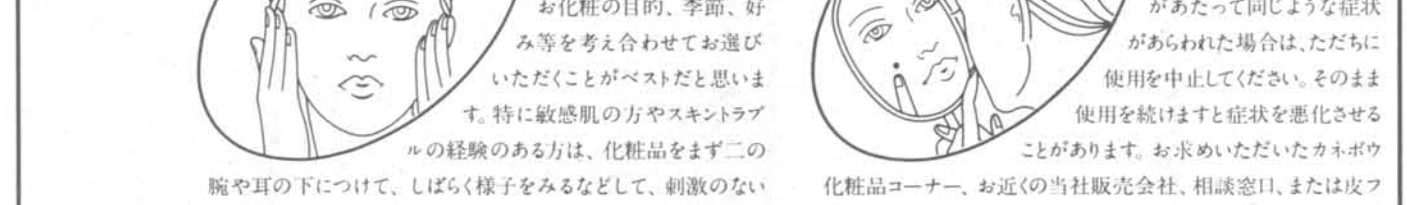 お化粧の目的、季節、好
み等を考え合わせてお選び
いただくことがベストだと思いま
す。特に敏感肌の方やスキントラブ
ルの経験のある方は、化粧品をまず二の
腕や耳の下につけて、しばらく様子をみるなどして、刺激のない
があたって同じような症状
があらわれた場合は、ただちに
使用を中止してください。そのまま
使用を続けますと症状を悪化させる
ことがあります。お求めいただいたカネボウ
化粧品コーナー、お近くの当社販売会社、相談窓口、または皮フ